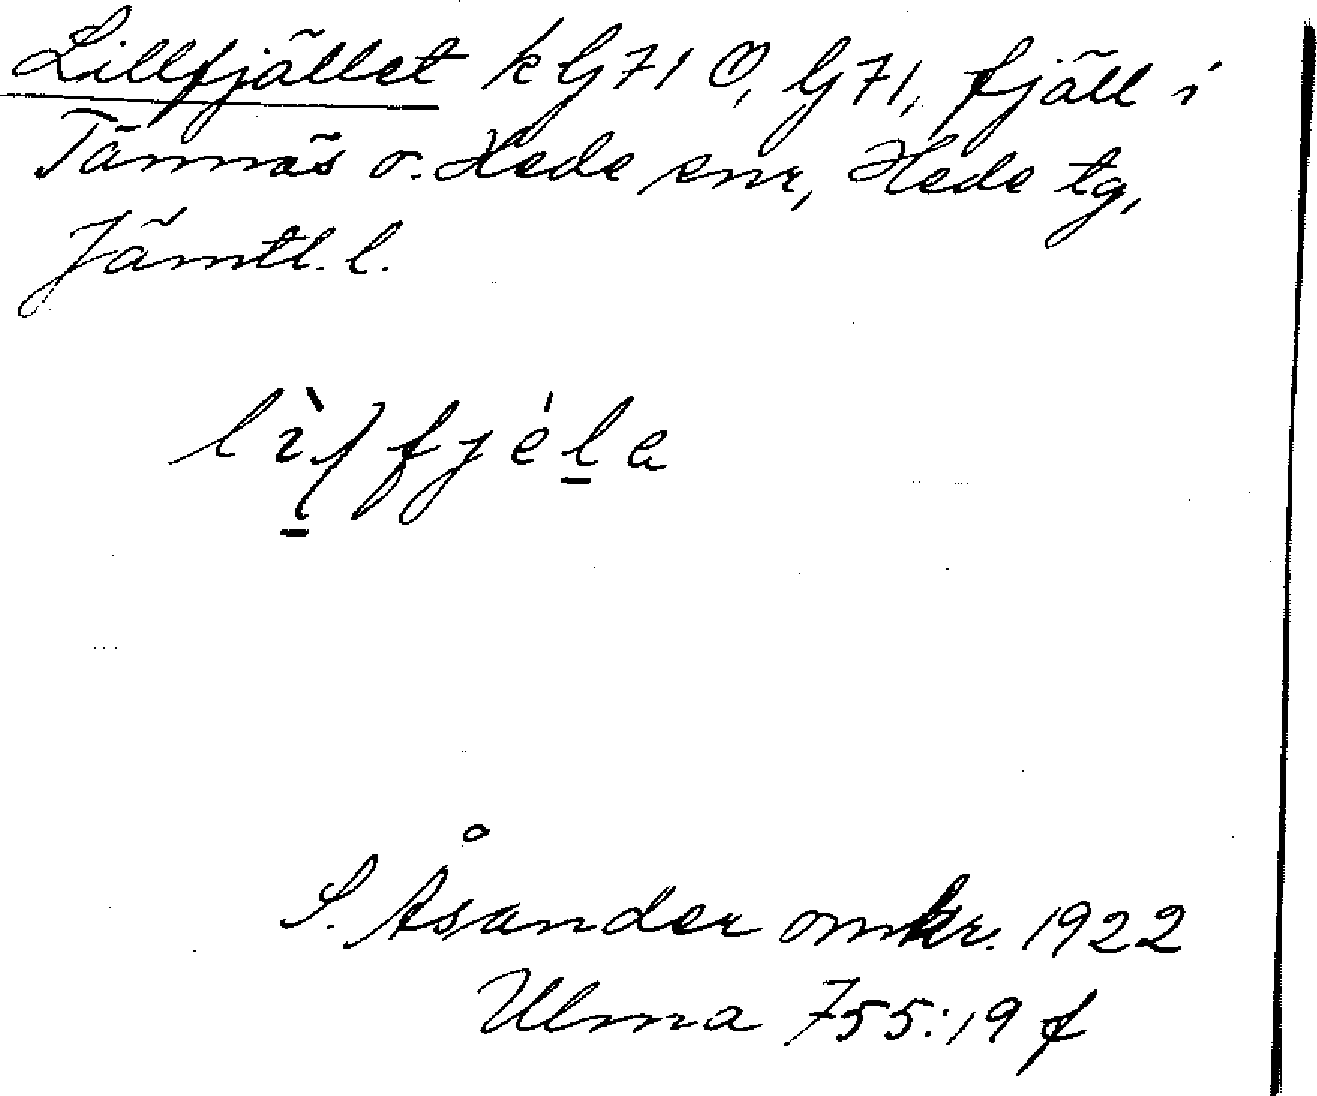 Lillfjället k G 71 O, G 71, fjäll i
Tännäs o. Hede snr, Hede tg,
Jämtl. l.
S. Åsander omkr. 1922
Ulma 755:19 f